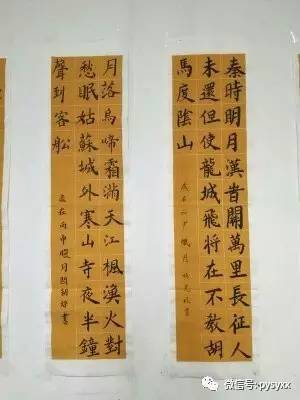 秦時明月漢旹關萬里長征人
未還但使龍城飛将在不教胡
馬度陰山
月落烏啼霜滿天江楓漁火對
愁眠姑蘇城外寒山寺夜半鐘
聲到客舩
歲在丙申臘月
微信号: pysyxx